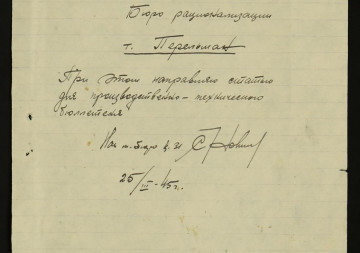 Бюро рационализации
т. Перегоман
При этом направляю статью
для производственно-технического
бюллетеня
Нач т. бюро ц. 21
25/III - 45 г.